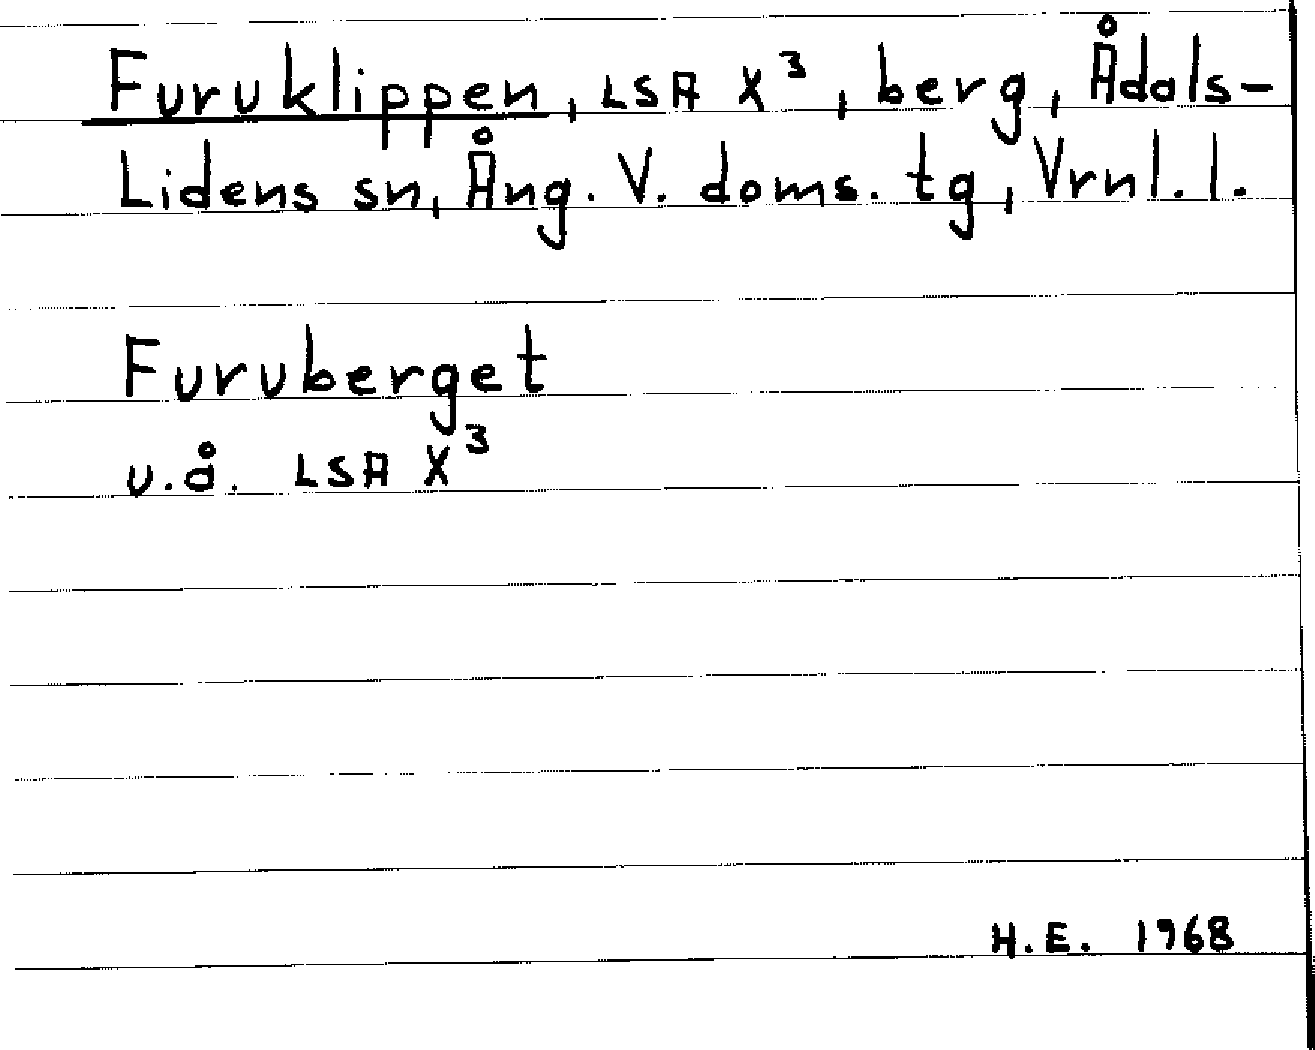 Furuklippen, LSA X³, berg, Ådals-
Lidens sn, Ång. V. doms. tg, Vrnl. l.
Furuberget
u.å. LSA X³
H.E. 1968